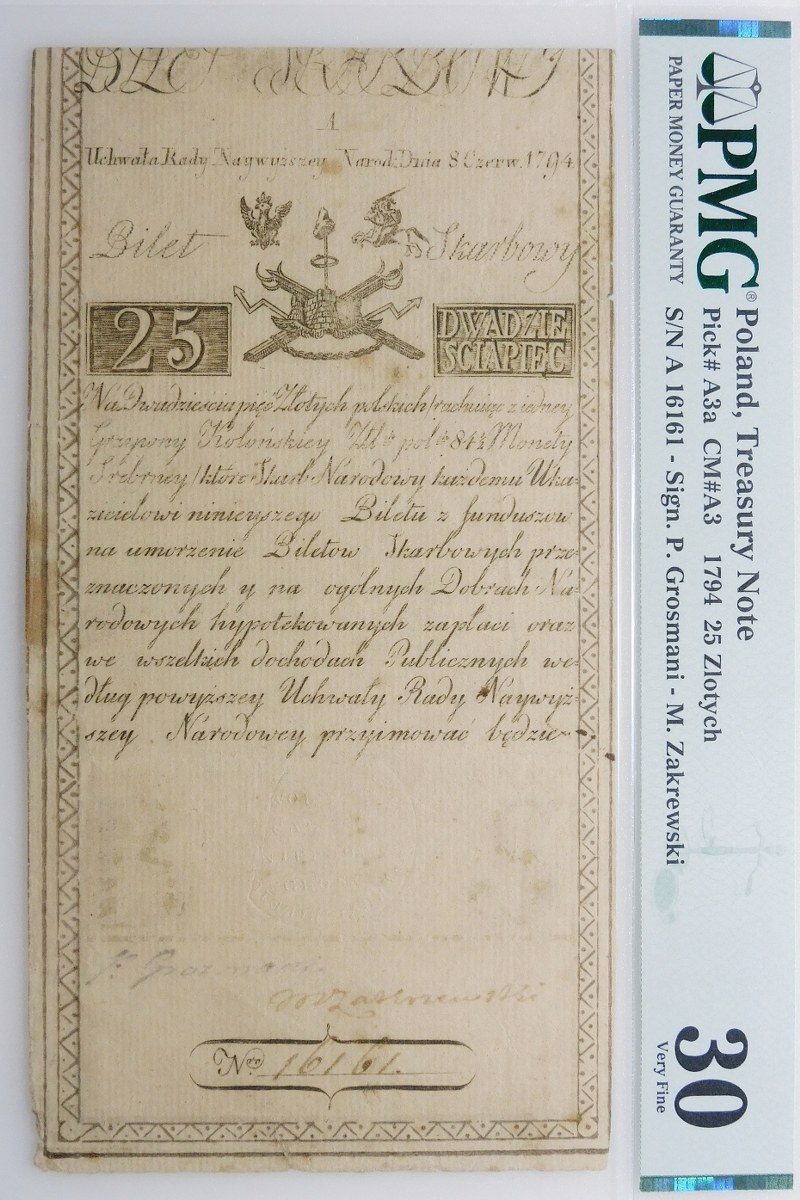 BILET SKARBOWY
A
Uchwała Rady Naywyższey Narod: Dnia 8 Czerw. 1794.
Bilet Skarbowy
25 DWADZIE
ŚCIAPIĘĆ
Na Dwadzieścia pięć Złotych polskich/rachuiąc z iedney
Grzywny Kolońskiey Zł. pol. 84½ Monety
Srebrney/które Skarb Narodowy każdemu Uka=
zicielowi ninieyszego Biletu z funduszow
na umorzenie Biletow Skarbowych prze=
znaczonych y na ogolnych Dobrach Na=
rodowych hypotekowanych zapłaci oraz
we wszelkich dochodach Publicznych we=
dług powyższey Uchwały Rady Naywyż=
szey Narodowey przyimować będzie
P. Grozmani
M Zakrzewski
Nro 16161.
PMG®
PAPER MONEY GUARANTY
Poland, Treasury Note
Pick# A3a CM#A3 1794 25 Zlotych
S/N A 16161 - Sign. P. Grosmani - M. Zakrewski
30
Very Fine